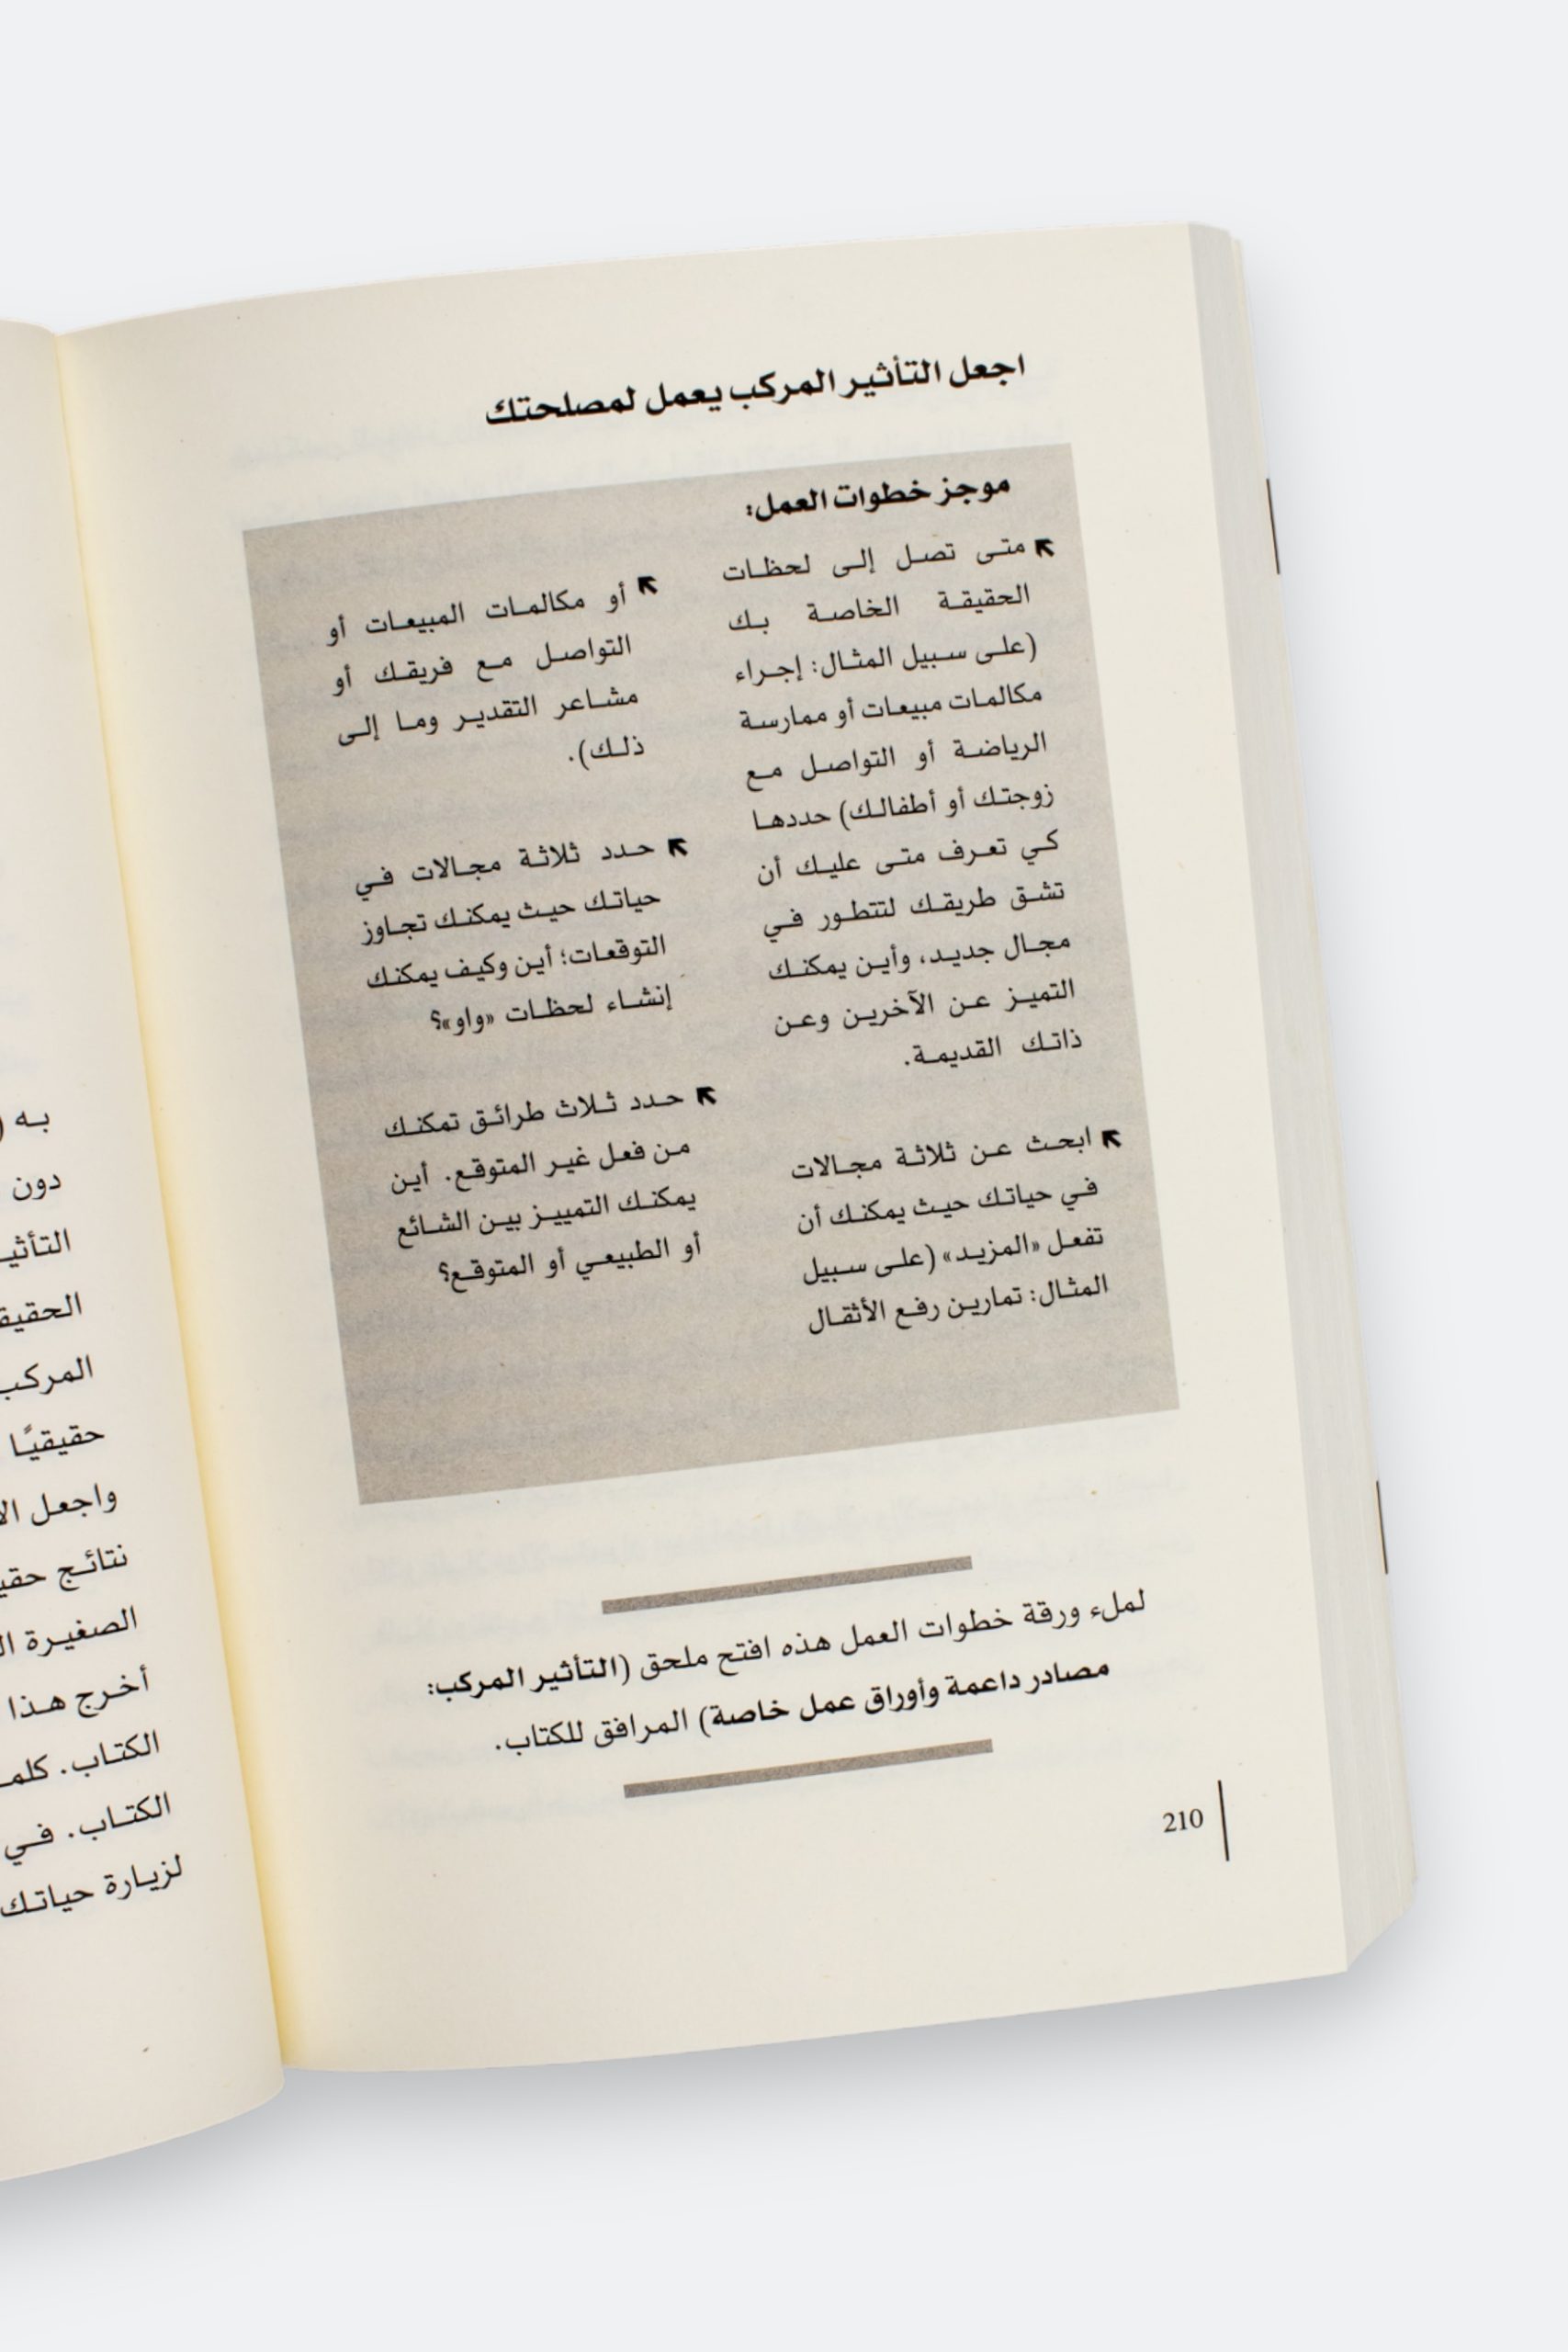 اجعل التأثير المركب يعمل لمصلحتك
موجز خطوات العمل:
متى تصل إلى لحظات
الحقيقة الخاصة بك
(على سبيل المثال: إجراء
مكالمات مبيعات أو ممارسة
الرياضة أو التواصل مع
زوجتك أو أطفالك) حددها
كي تعرف متى عليك أن
تشق طريقك لتتطور في
مجال جديد، وأين يمكنك
التميز عن الآخرين وعن
ذاتك القديمة.
ابحث عن ثلاثة مجالات
في حياتك حيث يمكنك أن
تفعل «المزيد» (على سبيل
المثال: تمارين رفع الأثقال
أو مكالمات المبيعات أو
التواصل مع فريقك أو
مشاعر التقدير وما إلى
ذلك).
حدد ثلاثة مجالات في
حياتك حيث يمكنك تجاوز
التوقعات؛ أين وكيف يمكنك
إنشاء لحظات «واو»؟
حدد ثلاث طرائق تمكنك
من فعل غير المتوقع. أين
يمكنك التمييز بين الشائع
أو الطبيعي أو المتوقع؟
لملء ورقة خطوات العمل هذه افتح ملحق (التأثير المركب:
مصادر داعمة وأوراق عمل خاصة) المرافق للكتاب.
210
به
دون
المركب
حقيقيًا
واجعل
نتائج
الصغيرة
أخرج هذا
الكتاب.
الكتاب. في
لزيارة حياتك